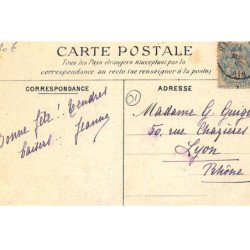 CARTE POSTALE
Tous les Pays étrangers n'acceptent pas la
correspondance au recto (se renseigner à la poste)
CORRESPONDANCE
ADRESSE
Bonne fête! Tendres
baisers. Jeanne
Madame G.
50, rue Chazières
Lyon
Rhône